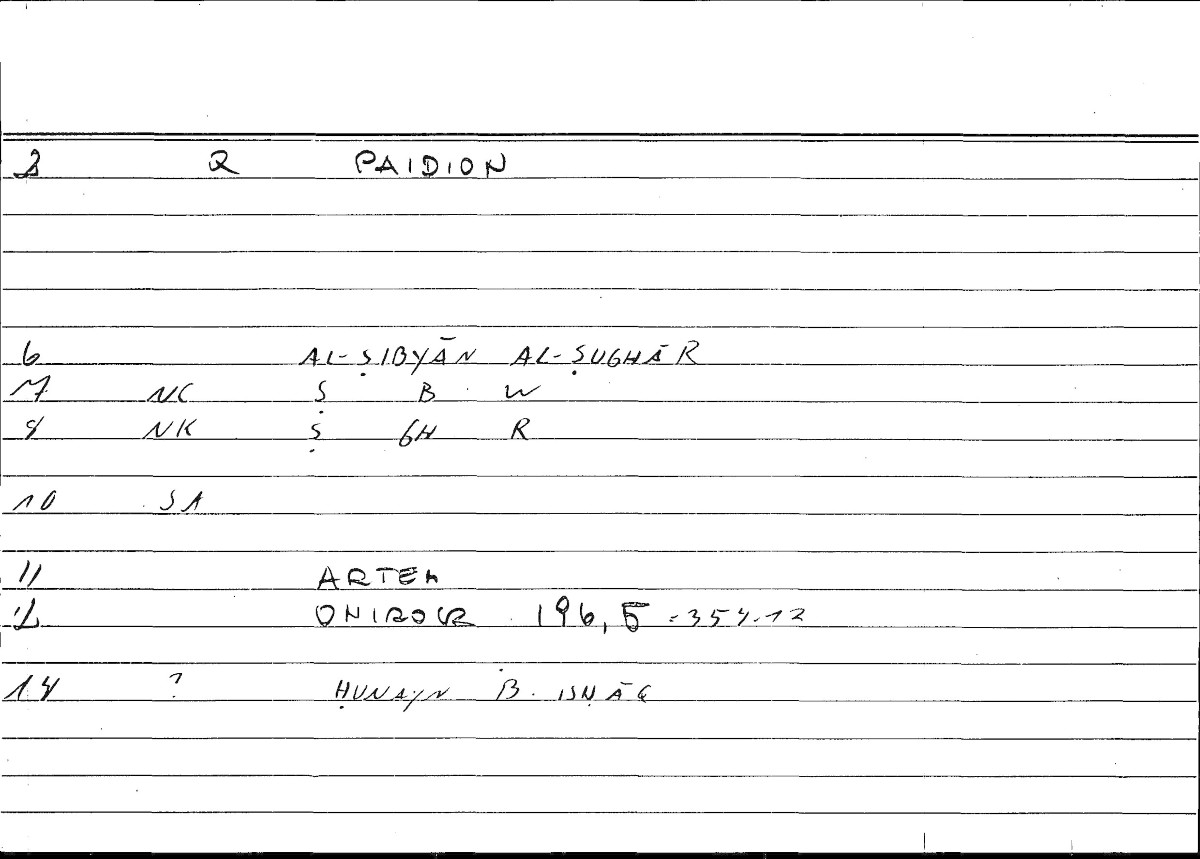 2 Q PAIDION
6 AL-ṢIBYĀN AL-ṢUGHĀR
7 NC Ṣ B W
8 NK Ṣ GH R
10 SA
11 ARTEM
2 ONIROCR 196,5 = 354.12
14 ? ḤUNAYN B. ISḤĀQ